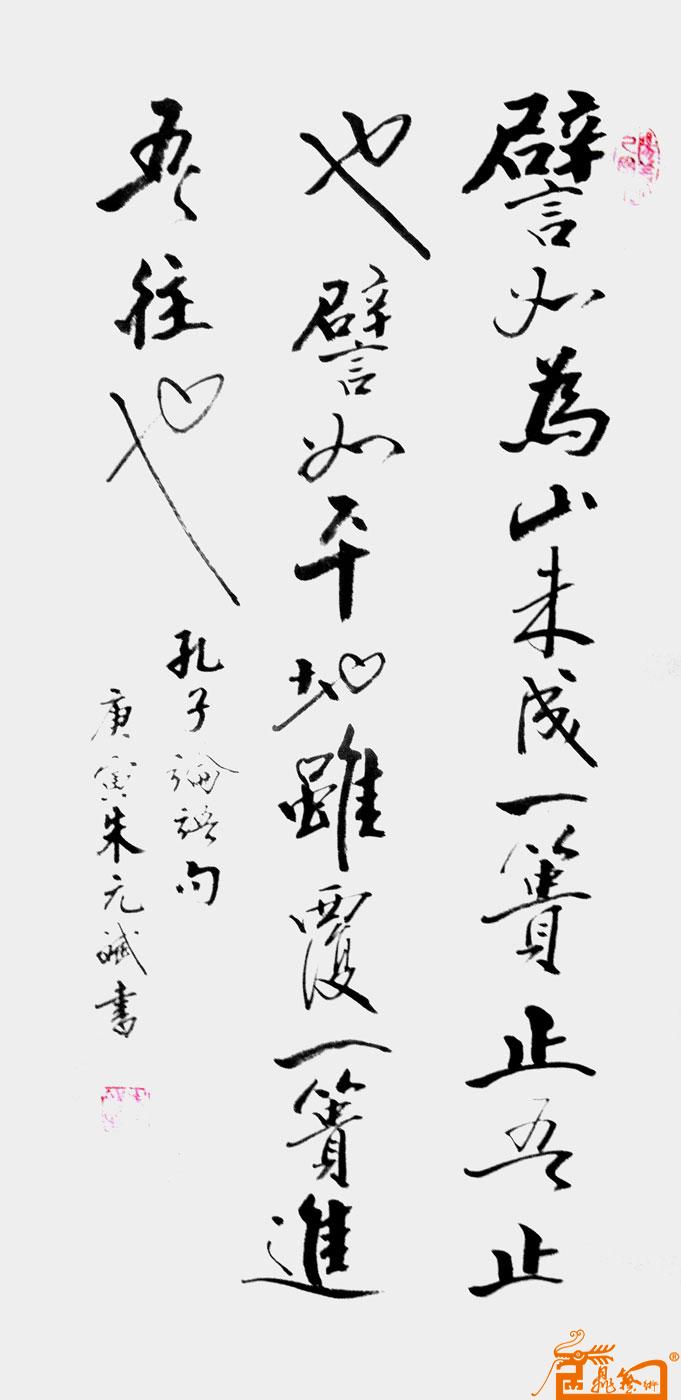 譬如為山未成一簣止吾止
也譬如平地雖覆一簣進
吾往也
孔子論語句
庚寅朱元斌書